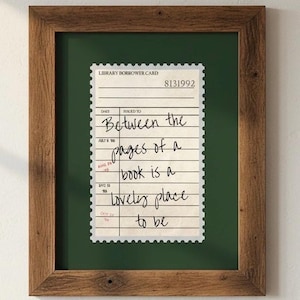 LIBRARY BORROWER CARD
8131992
DATE ISSUED TO
Between the
pages of a
book is a
lovely place
to be